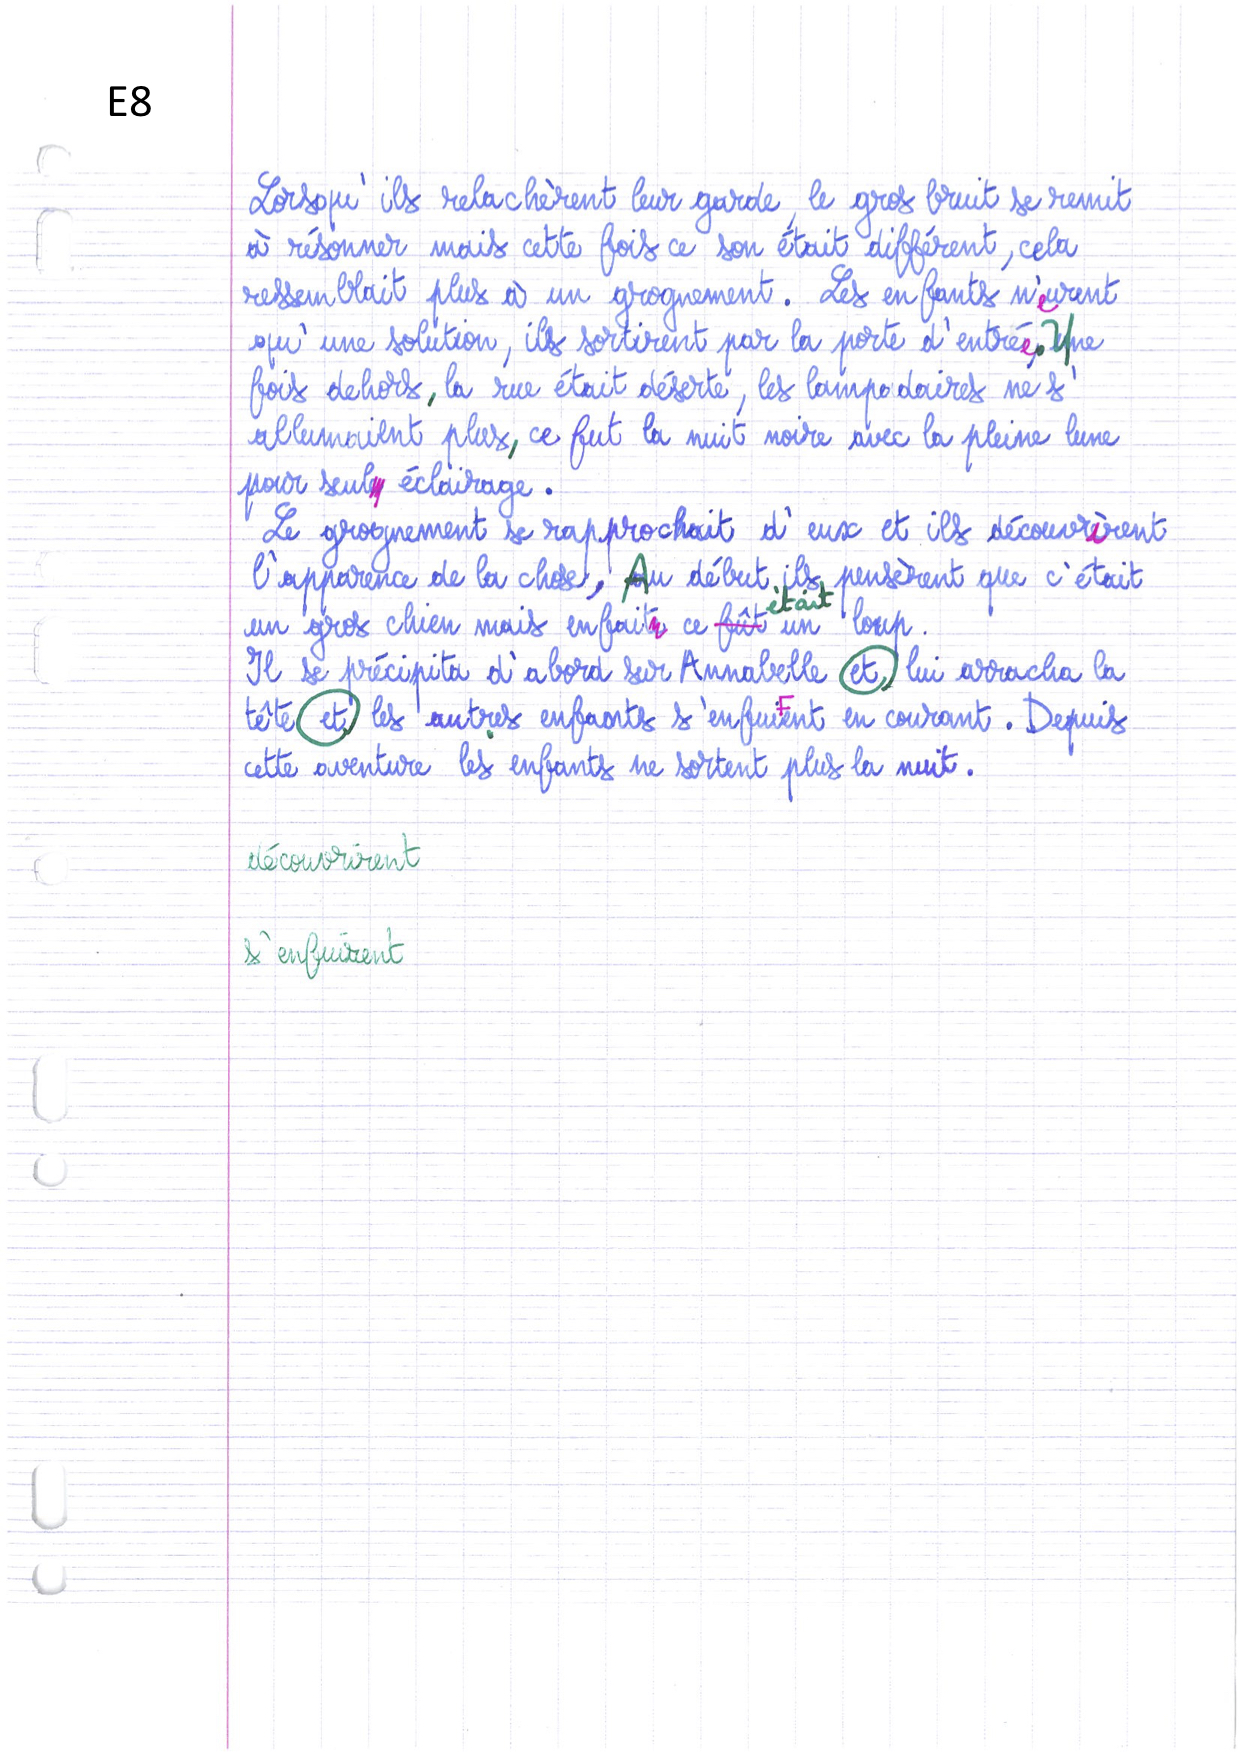 E8
Lorsqu'ils relachèrent leur garde, le gros bruit se remit
à résonner mais cette fois ce son était différent, cela
ressemblait plus à un grognement. Les enfants n'eurent
qu'une solution, ils sortirent par la porte d'entrée. Une
fois dehors, la rue était déserte, les lampadaires ne s'
allumaient plus, ce fut la nuit noire avec la pleine lune
pour seul éclairage.
Le grognement se rapprochait d'eux et ils découvrirent
l'apparence de la chose, Au début ils pensèrent que c'était
était
un gros chien mais enfait ce fût un loup.
Il se précipita d'abord sur Annabelle et, lui arracha la
tête et, les autres enfants s'enfuient en courant. Depuis
cette aventure les enfants ne sortent plus la nuit.
découvrirent
s'enfuirent